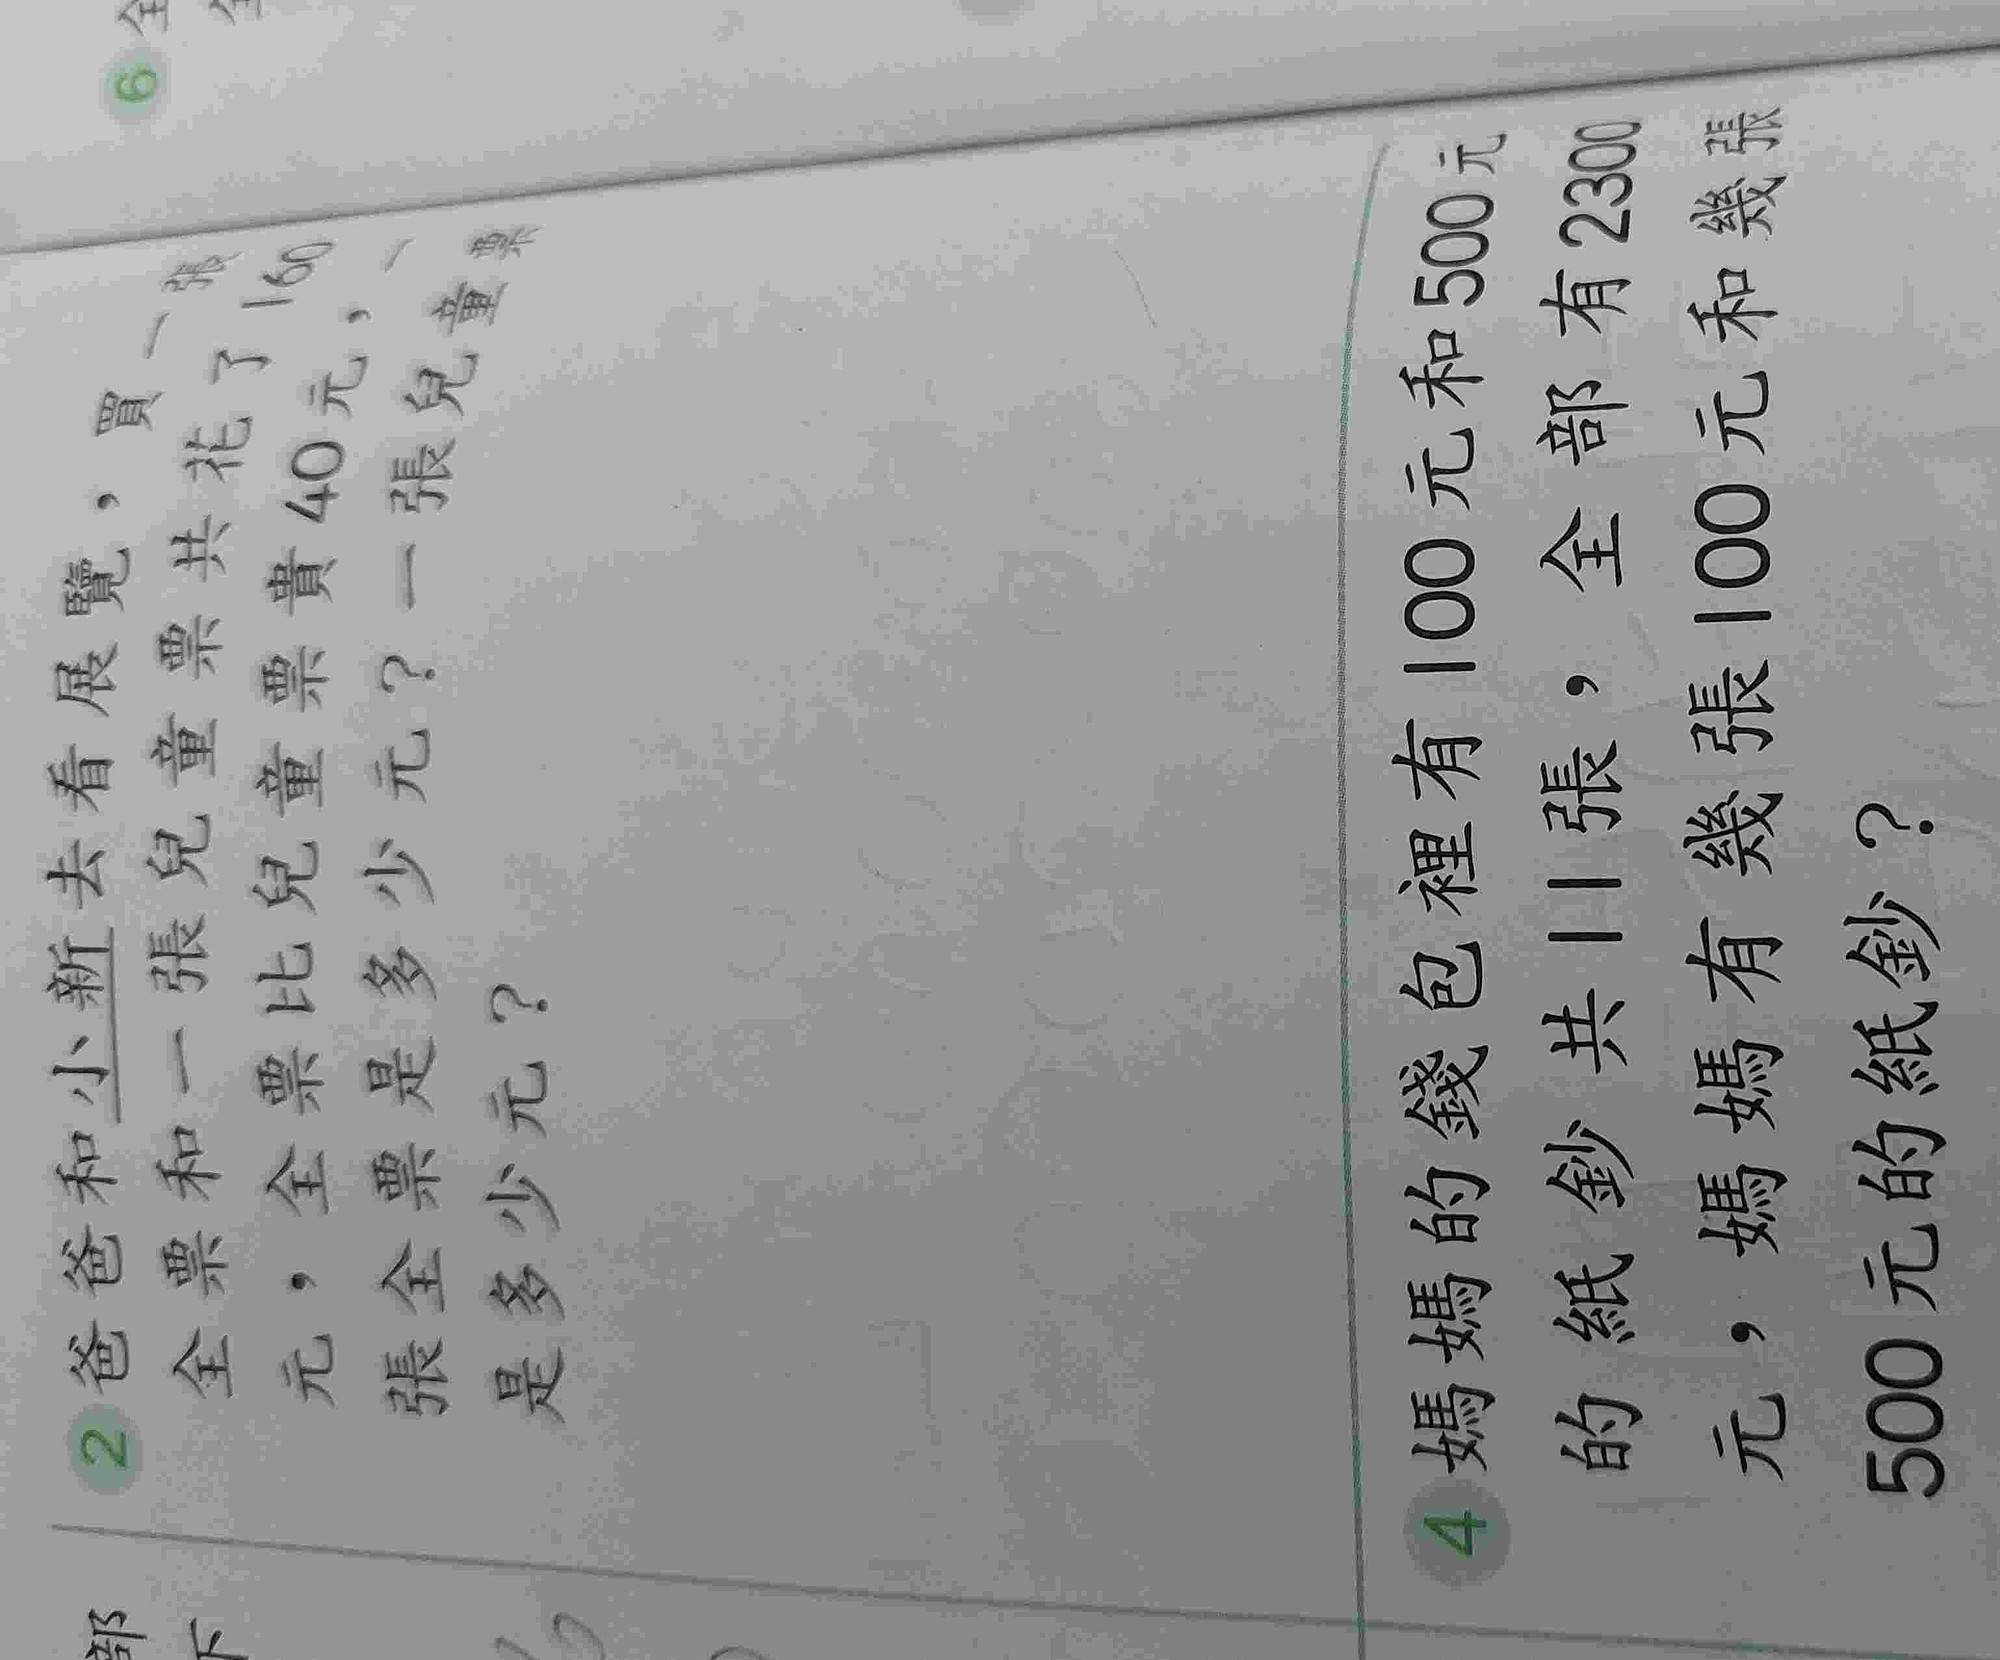 2 爸爸和小新去看展覽，買一張
全票和一張兒童票共花了160
元，全票比兒童票貴40元，一
張全票是多少元？一張兒童票
是多少元？
4 媽媽的錢包裡有100元和500元
的紙鈔共11張，全部有2300
元，媽媽有幾張100元和幾張
500元的紙鈔？
部
下
6 全
全